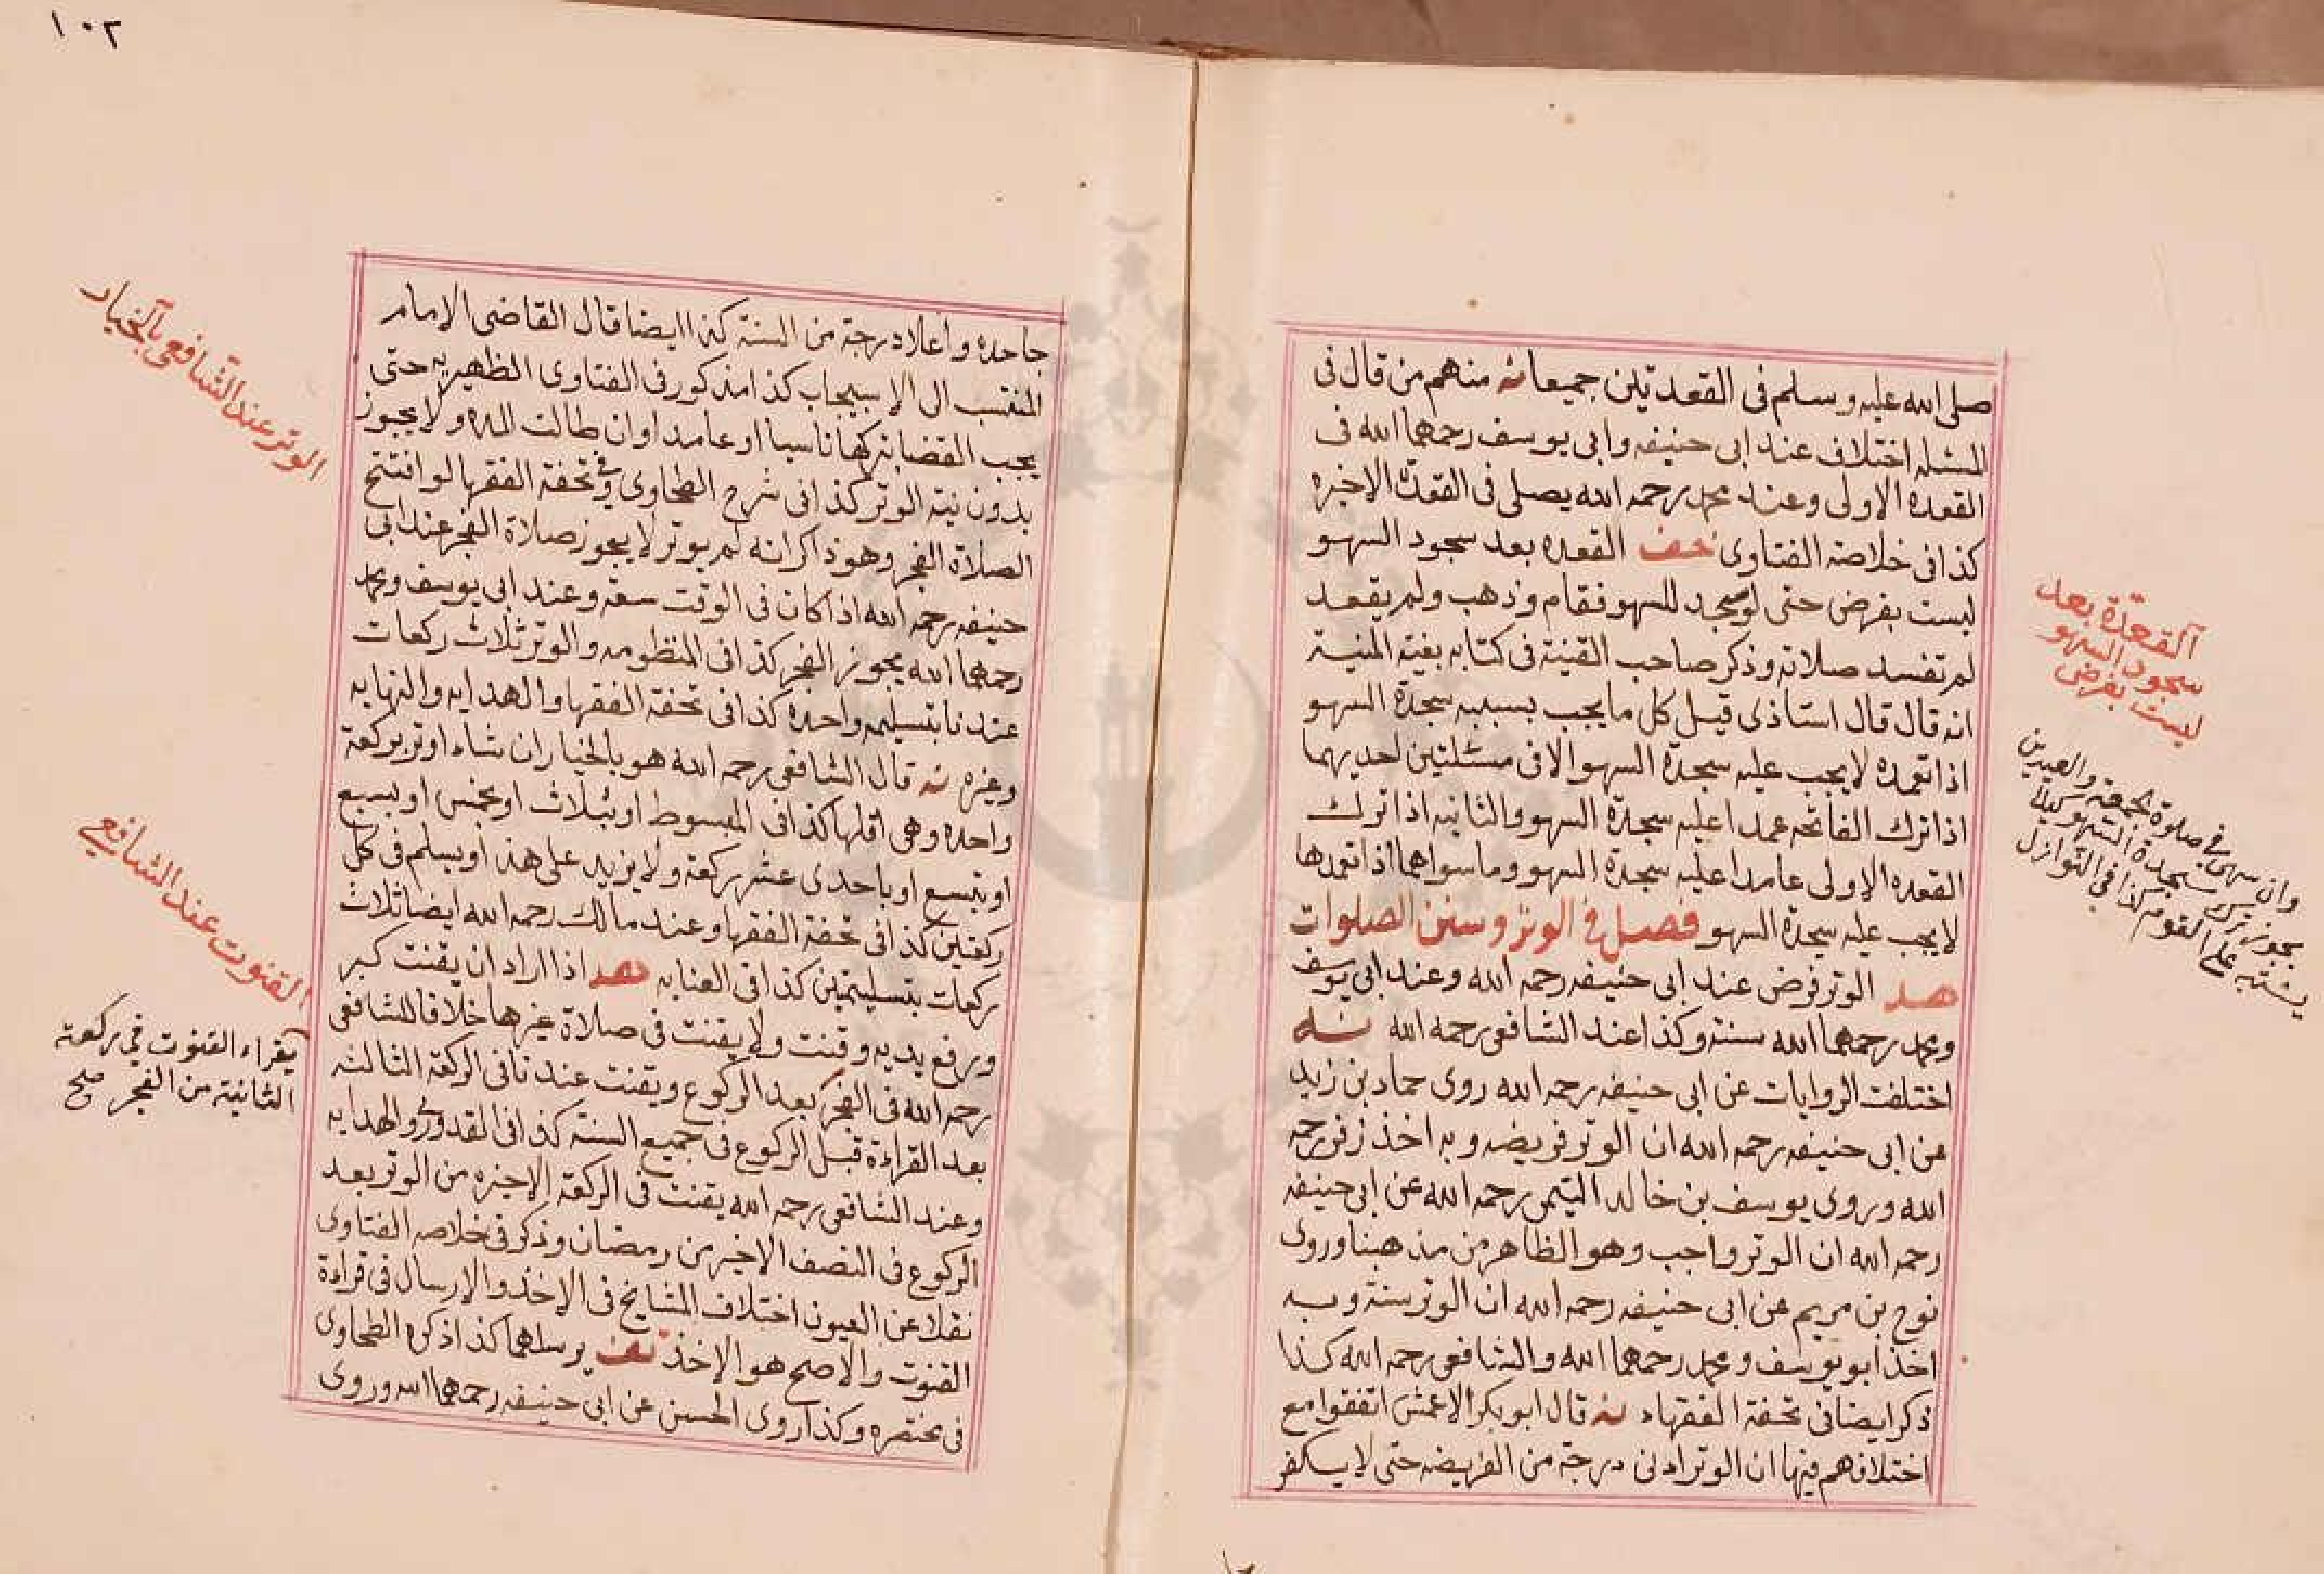 صلى الله عليه وسلم فى القعدتين جميعا نه منهم من قال فى
المسئله اختلاف عند ابى حنيفه وابى يوسف رحمهما الله فى
القعده الاولى وعند محمد رحمه الله يصلى فى القعدة الاخيره
كذا فى خلاصة الفتاوى خف القعده بعد سجود السهو
ليست بفرض حتى لو سجد للسهو فقام وذهب ولم يقعد
لم تفسد صلاته وذكر صاحب القنية فى كتابه بغية المنية
انه قال قال استاذى قيل كل ما يجب بسببه سجدة السهو
اذا تعمده لا يجب عليه سجدة السهو الا فى مسئلتين احديهما
اذا ترك الفاتحه عمدا عليه سجدة السهو والثانيه اذا ترك
القعده الاولى عامدا عليه سجدة السهو وما سواهما اذا تعمدها
لا يجب عليه سجدة السهو فصل فى الوتر وسنن الصلوات
هد الوتر فرض عند ابى حنيفه رحمه الله وعند ابى يوسف
ومحمد رحمهما الله سنة وكذا عند الشافعى رحمه الله
اختلفت الروايات عن ابى حنيفه رحمه الله روى حماد بن زيد
عن ابى حنيفه رحمه الله ان الوتر فريضه وبه اخذ زفر رحمه
الله وروى يوسف بن خالد التيمى رحمه الله عن ابى حنيفه
رحمه الله ان الوتر واجب وهو الظاهر من مذهبنا وروى
نوح بن مريم عن ابى حنيفه رحمه الله ان الوتر سنة وبه
اخذ ابو يوسف ومحمد رحمهما الله والشافعى رحمه الله كذا
ذكر ايضا فى تحفة الفقهاء نه قال ابو بكر الاعمش اتفقوا مع
اختلافهم فيها ان الوتر ادنى درجة من الفريضه حتى لا يكفر
القعدة بعد
سجود السهو
ليست بفرض
وان سهى فى صلوة الجمعة والعيدين
يجوز ترك سجدة السهو كيلا
يشتبه على القوم كذا فى النوازل
١٠٢
جاحده واعلا درجة من السنة كذا ايضا قال القاضى الامام
المنتسب الى الاسبيجاب كذا مذكور فى الفتاوى الظهيريه حتى
يجب القضا بتركها ناسيا او عامدا وان طالت المده ولا يجوز
بدون نية الوتر كذا فى شرح الطحاوى وفى تحفة الفقها لو افتتح
الصلاة الفجر وهو ذاكر انه لم يوتر لا يجوز صلاة الفجر عند ابى
حنيفه رحمه الله اذا كان فى الوقت سعة وعند ابى يوسف ومحمد
رحمهما الله يجوز الفجر كذا فى المنظومه والوتر ثلاث ركعات
عندنا بتسليمه واحده كذا فى تحفة الفقها والهدايه والنهايه
وغيره نه قال الشافعى رحمه الله هو بالخيار ان شاء اوتر بركعة
واحده وهى اقلها كذا فى المبسوط او بثلاث او بخمس او بسبع
او بتسع او باحدى عشر ركعة ولا يزيد على هذا ويسلم فى كل
ركعتين كذا فى تحفة الفقها وعند مالك رحمه الله ايضا ثلاث
ركعات بتسليمتين كذا فى العنايه هد اذا اراد ان يقنت كبر
ورفع يديه وقنت ولا يقنت فى صلاة غيرها خلافا للشافعى
رحمه الله فى الفجر بعد الركوع ويقنت عندنا فى الركعة الثالثه
بعد القراءة قبل الركوع فى جميع السنة كذا فى القدورى والهدايه
وعند الشافعى رحمه الله يقنت فى الركعة الاخيره من الوتر بعد
الركوع فى النصف الاخير من رمضان وذكر فى خلاصة الفتاوى
نقلا عن العيون اختلاف المشايخ فى الاخذ والارسال فى قراءة
القنوت والاصح هو الاخذ تف يرسلهما كذا ذكره الطحاوى
فى مختصره وكذا روى الحسن عن ابى حنيفه رحمهما الله وروى
الوتر عند الشافعى بالخيار
القنوت عند الشافعي
يقراء القنوت في ركعة
الثانية من الفجر صح